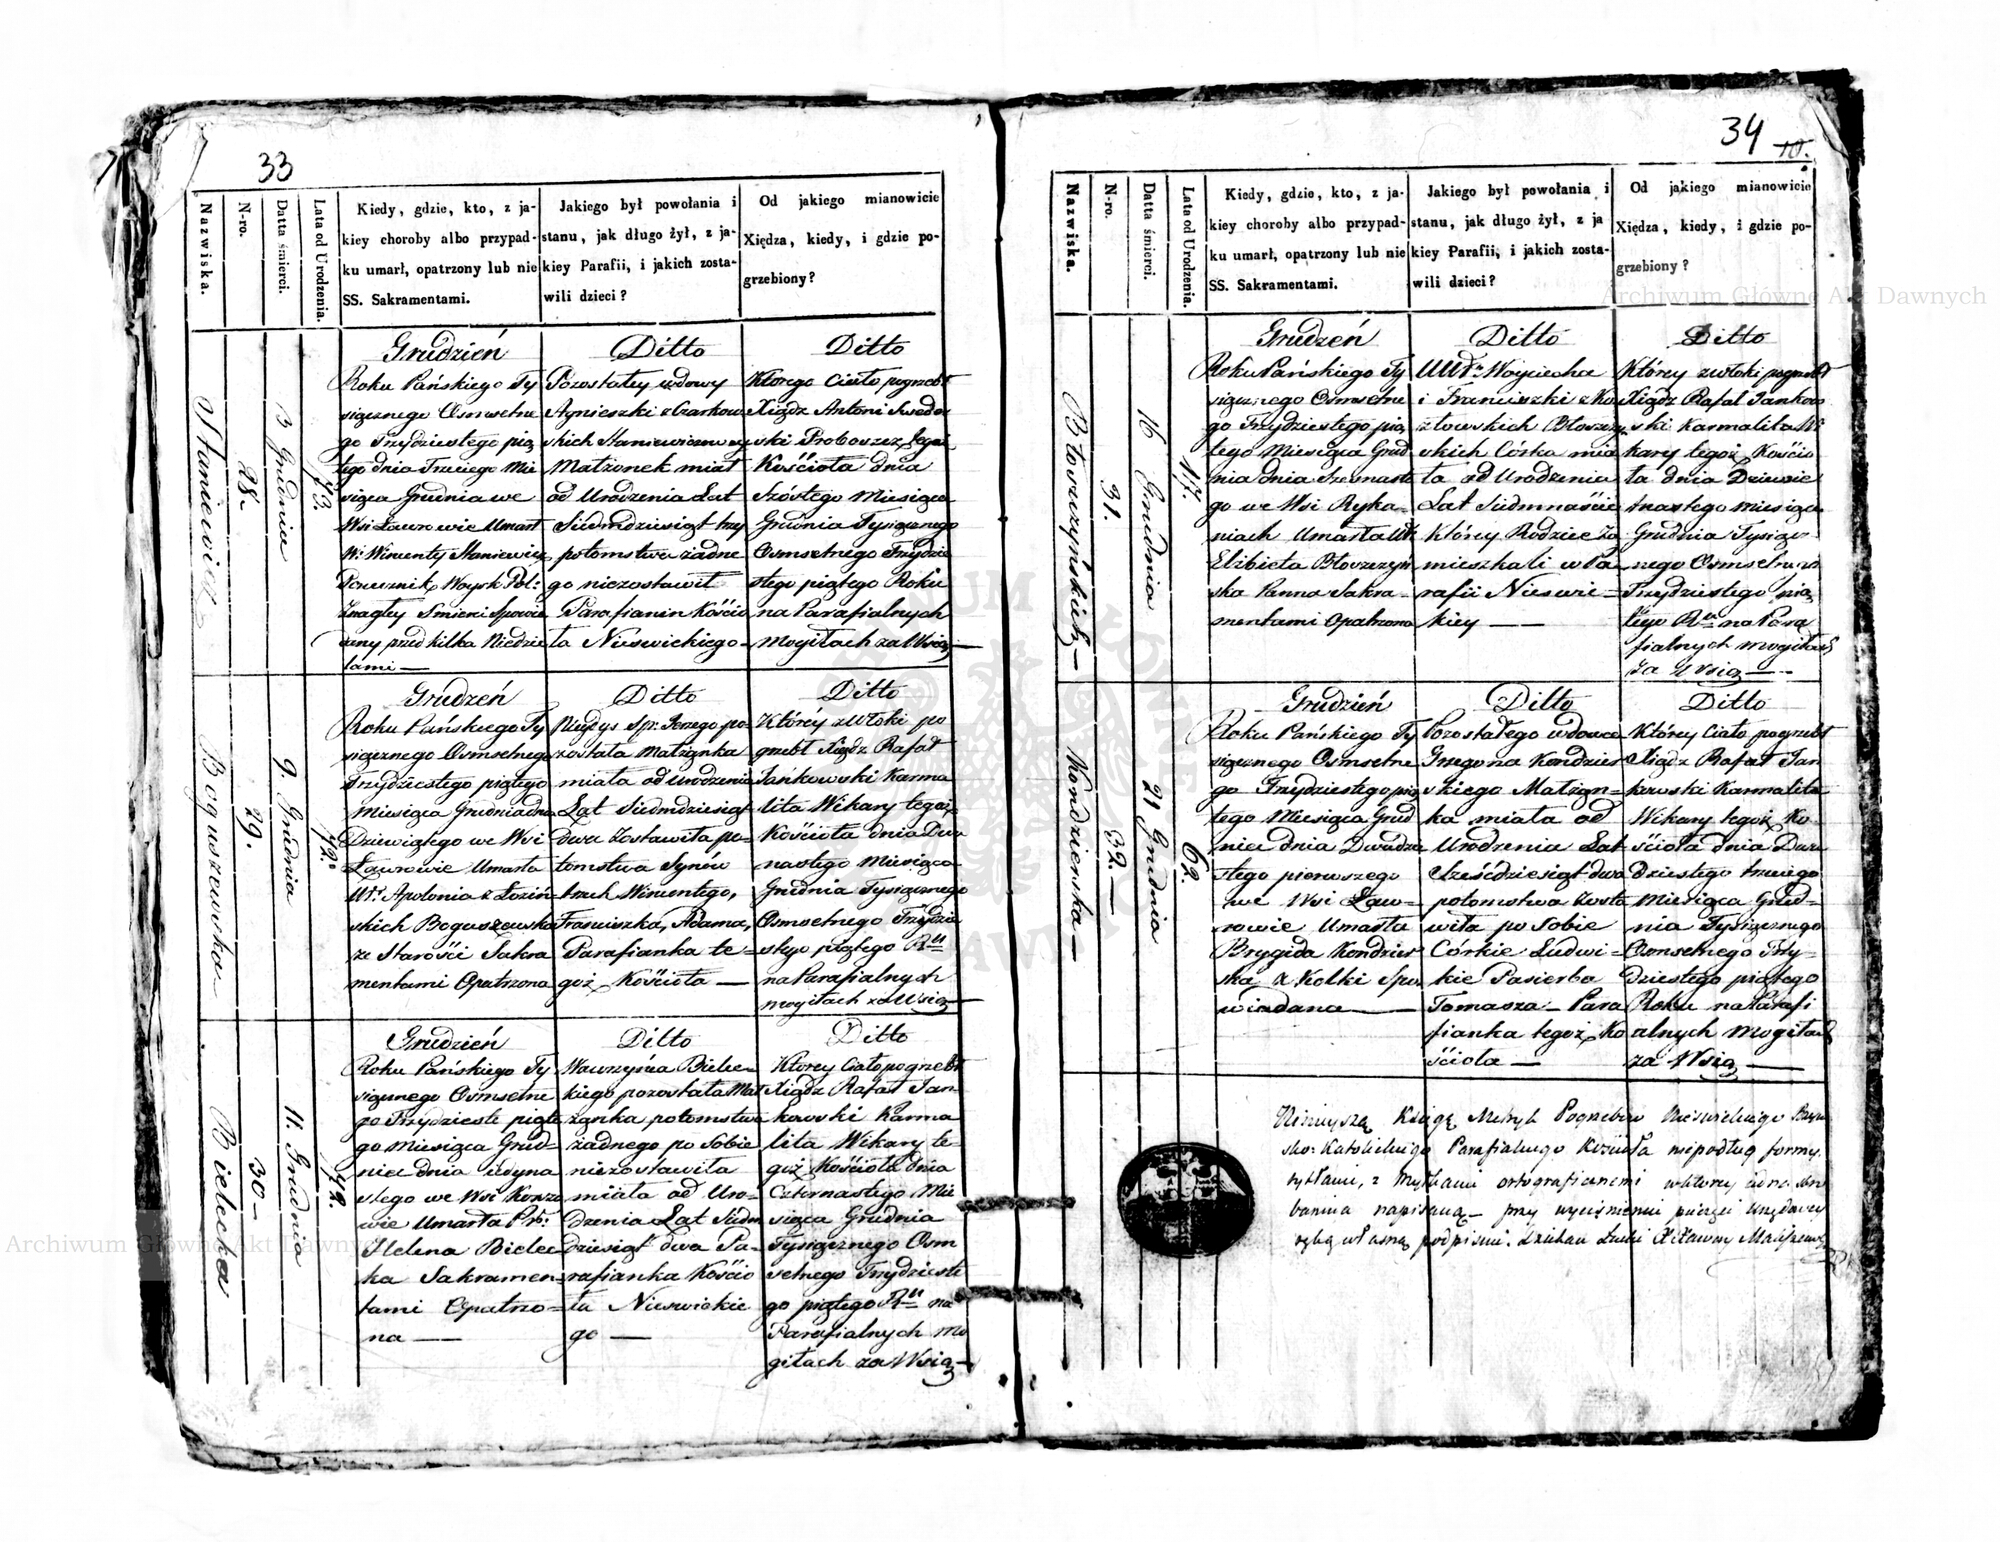 33
Nazwiska.
N-ro.
Datta śmierci.
Lata od Urodzenia.
Kiedy, gdzie, kto, z ja-
kiey choroby albo przypad-
ku umarł, opatrzony lub nie
SS. Sakramentami.
Jakiego był powołania i
stanu, jak długo żył, z ja-
kiey Parafii, i jakich zosta-
wili dzieci?
Od jakiego mianowicie
Xiędza, kiedy, i gdzie po-
grzebiony?
Staniewicz
28.
3 Grudnia
73.
Grudzień
Roku Pańskiego Ty
siącznego Osmsetne
go Trzydziestego pią
tego dnia Trzeciego Mie
siąca Grudnia we
Wsi Ławrowie Umarł
W. Wincenty Staniewicz
Porucznik Woysk Pol:
Znagłey Smierci Spowie
dany przed kilka Niedzie
lami —
Ditto
Pozostałey wdowy
Agnieszki z Czarkow
skich Staniewiczowey
Matżonek miał
od Urodzenia Lat
Siedmdziesiąt trzy
potomstwa żadne
go niezostawił
Parafianin Kościo
ła Nieswickiego —
Ditto
Ktorego Ciało pogrzebł
Xiądz Antoni
ski Proboszcz tegoż
Kościoła dnia
Szóstego Miesiąca
Grudnia Tysiącznego
Osmsetnego Trzydzie
stego piątego Roku
na Parafialnych
Mogiłach za Wsią —
Boguszewska
29.
9. Grudnia
72.
Grudzeń
Roku Pańskiego Ty
siącznego Osmsetnego
Trzydziestego piątego
Miesiąca Grudnia dnia
Dziewiątego we Wsi
Ławrowie Umarła
Ur. Apolonia z Łozin
skich Boguszewska
ze Starośći Sakra
mentami Opatrzona
Ditto
Niegdyś Sp. Jerzego po-
została Matżąnka
miała od Urodzenia
Lat Siedmdziesiąt
dwa Zostawiła po-
tomstwa Synów
trzech Wincentego,
Franciszka, Adama,
Parafianka te-
goż Kośćioła —
Ditto
Któréy zwłoki po
grzebł Xiądz Rafał
Jańkowski Karma
lita Wikary tegoż
Kościoła dnia Dwu
nastego Miesiąca
Grudnia Tysiącznego
Osmsetnego Trzydzie
stego piątego Rku
na Parafialnych
mogiłach za Wsią —
Bielecka
30 —
11. Grudnia
72.
Grudzień
Roku Pańskiego Ty
siącznego Osmsetne
go Trzydzieste piąte
go Miesiąca Grud-
nia dnia Jedyna
stego we Wsi Korszo
wie Umarła Pr.
Helena Bielec
ka Sakramen-
tami Opatrzo-
na —
Ditto
Wawrzyńca Bielec-
kiego pozostała Mat
żąnka potomstwa
żadnego po Sobie
niezostawiła
miała od Uro-
dzenia Lat Siedm
dziesiąt dwa Pa-
rafianka Kośćio
ła Nieswickie
go —
Ditto
Ktorey Ciało pogrzebł
Xiądz Rafał Jan-
kowski Karma
lita Wikary te-
goż Kościoła dnia
Czternastego Mie
siąca Grudnia
Tysiącznego Osm
setnego Trzydzieste
go piątego Rku na
Parafialnych mo
giłach za Wsią —
34
10.
Nazwiska.
N-ro.
Datta śmierci.
Lata od Urodzenia.
Kiedy, gdzie, kto, z ja-
kiey choroby albo przypad-
ku umarł, opatrzony lub nie
SS. Sakramentami.
Jakiego był powołania i
stanu, jak długo żył, z ja
kiey Parafii, i jakich zosta-
wili dzieci?
Od jakiego mianowicie
Xiędza, kiedy, i gdzie po-
grzebiony?
Błoszczyńskich —
31.
16 Grudnia
17.
Grudzeń
Roku Pańskiego Ty
siącznego Osmsetne
go Trzydziestego pią
tego Miesiąca Grud
nia dnia Szesnaste
go we Wsi Ryka-
niach Umarła Ur.
Elżbieta Błoszczyń
ska Panna Sakra-
mentami Opatrzona
Ditto
Woyciecha
i Franciszki z Ko
złowskich Błoszczyń
skich Córka mia
ła od Urodzenia
Lat Siedmnaście
Którey Rodzice Za
mieszkali w Pa
rafii Nieswic-
kiey —
Ditto
Którey zwłoki pogrzebł
Xiądz Rafał Jankow
ski Karmalita Wi
kary tegoż Kościo
ła dnia Dziewię
tnastego miesiąca
Grudnia Tysiąc
nego Osmsetnego
Trzydziestego pią
tego Rku na Para
fialnych mogiłach
za Wsią —
Kondzierska —
32. —
21 Grudnia
62.
Grudzień
Roku Pańskiego Ty
siącznego Osmsetne
go Trzydziestego pią
tego Miesiąca Grud
nia dnia Dwudzie
stego pierwszego
we Wsi Ław-
rowie Umarła
Brygida Kondzier
ska z Kolki Spo
wiadana —
Ditto
Pozostałego wdowca
Grzegorza Kondzier
skiego Matżąn-
ka miała od
Urodzenia Lat
Sześćdziesiąt dwa
potomstwa Zosta
wiła po Sobie
Córkie Ludwi-
kie Pasierba
Tomasza — Para
fianka tegoż Ko
śćioła —
Ditto
Którey Ciało pogrzebł
Xiądz Rafał Jan
kowski Karmalita
Wikary tegoż Ko-
śćioła dnia Dwu
dziestego trzeciego
Miesiąca Grud-
nia Tysiącznego
Osmsetnego Trzy-
dziestego piątego
Roku na Parafi
alnych Mogiłach
za Wsią —
Niniejszą Księgę Metryk Pogrzebów Nieświckiego Rzym
sko-Katolickiego Parafialnego Kościoła niepodług formy
z myłkami ortograficznemi
napisaną — przy wyciśnieniu pieczęci Urzędowey
ręką własną podpisuię. Dziekan Łucki
Archiwum Główne Akt Dawnych
Archiwum Główne Akt Dawnych